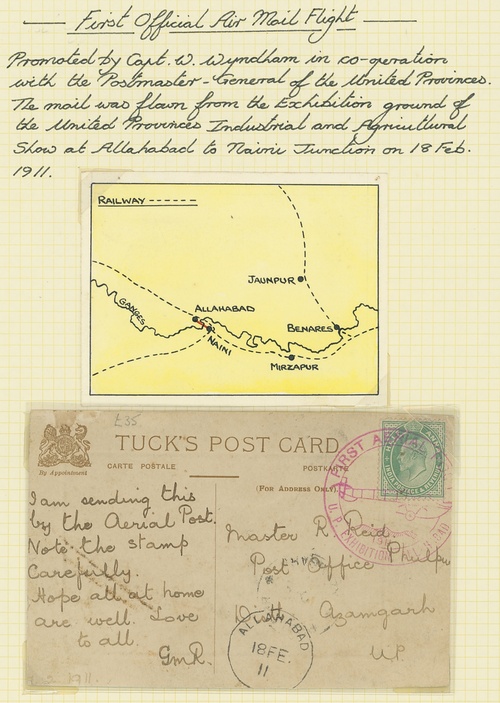 First Official Air Mail Flight
Promoted by Capt. W. Wyndham in co-operation
with the Postmaster-General of the United Provinces.
The mail was flown from the Exhibition ground of
the United Provinces Industrial and Agricultural
Show at Allahabad to Naini Junction on 18 Feb.
1911.
RAILWAY
JAUNPUR
GANGES
ALLAHABAD
BENARES
NAINI
MIRZAPUR
£35
TUCK'S POST CARD
By Appointment
CARTE POSTALE
POSTKARTE
(For Address Only)
FIRST AERIAL
U.P. EXHIBITION
I am sending this
by the Aerial Post.
Note the stamp
Carefully.
Hope all at home
are well. Love
to all.
GmR.
Master R Reid
Post Office
Distt Azamgarh
U.P.
ALLAHABAD
18 FE.
11